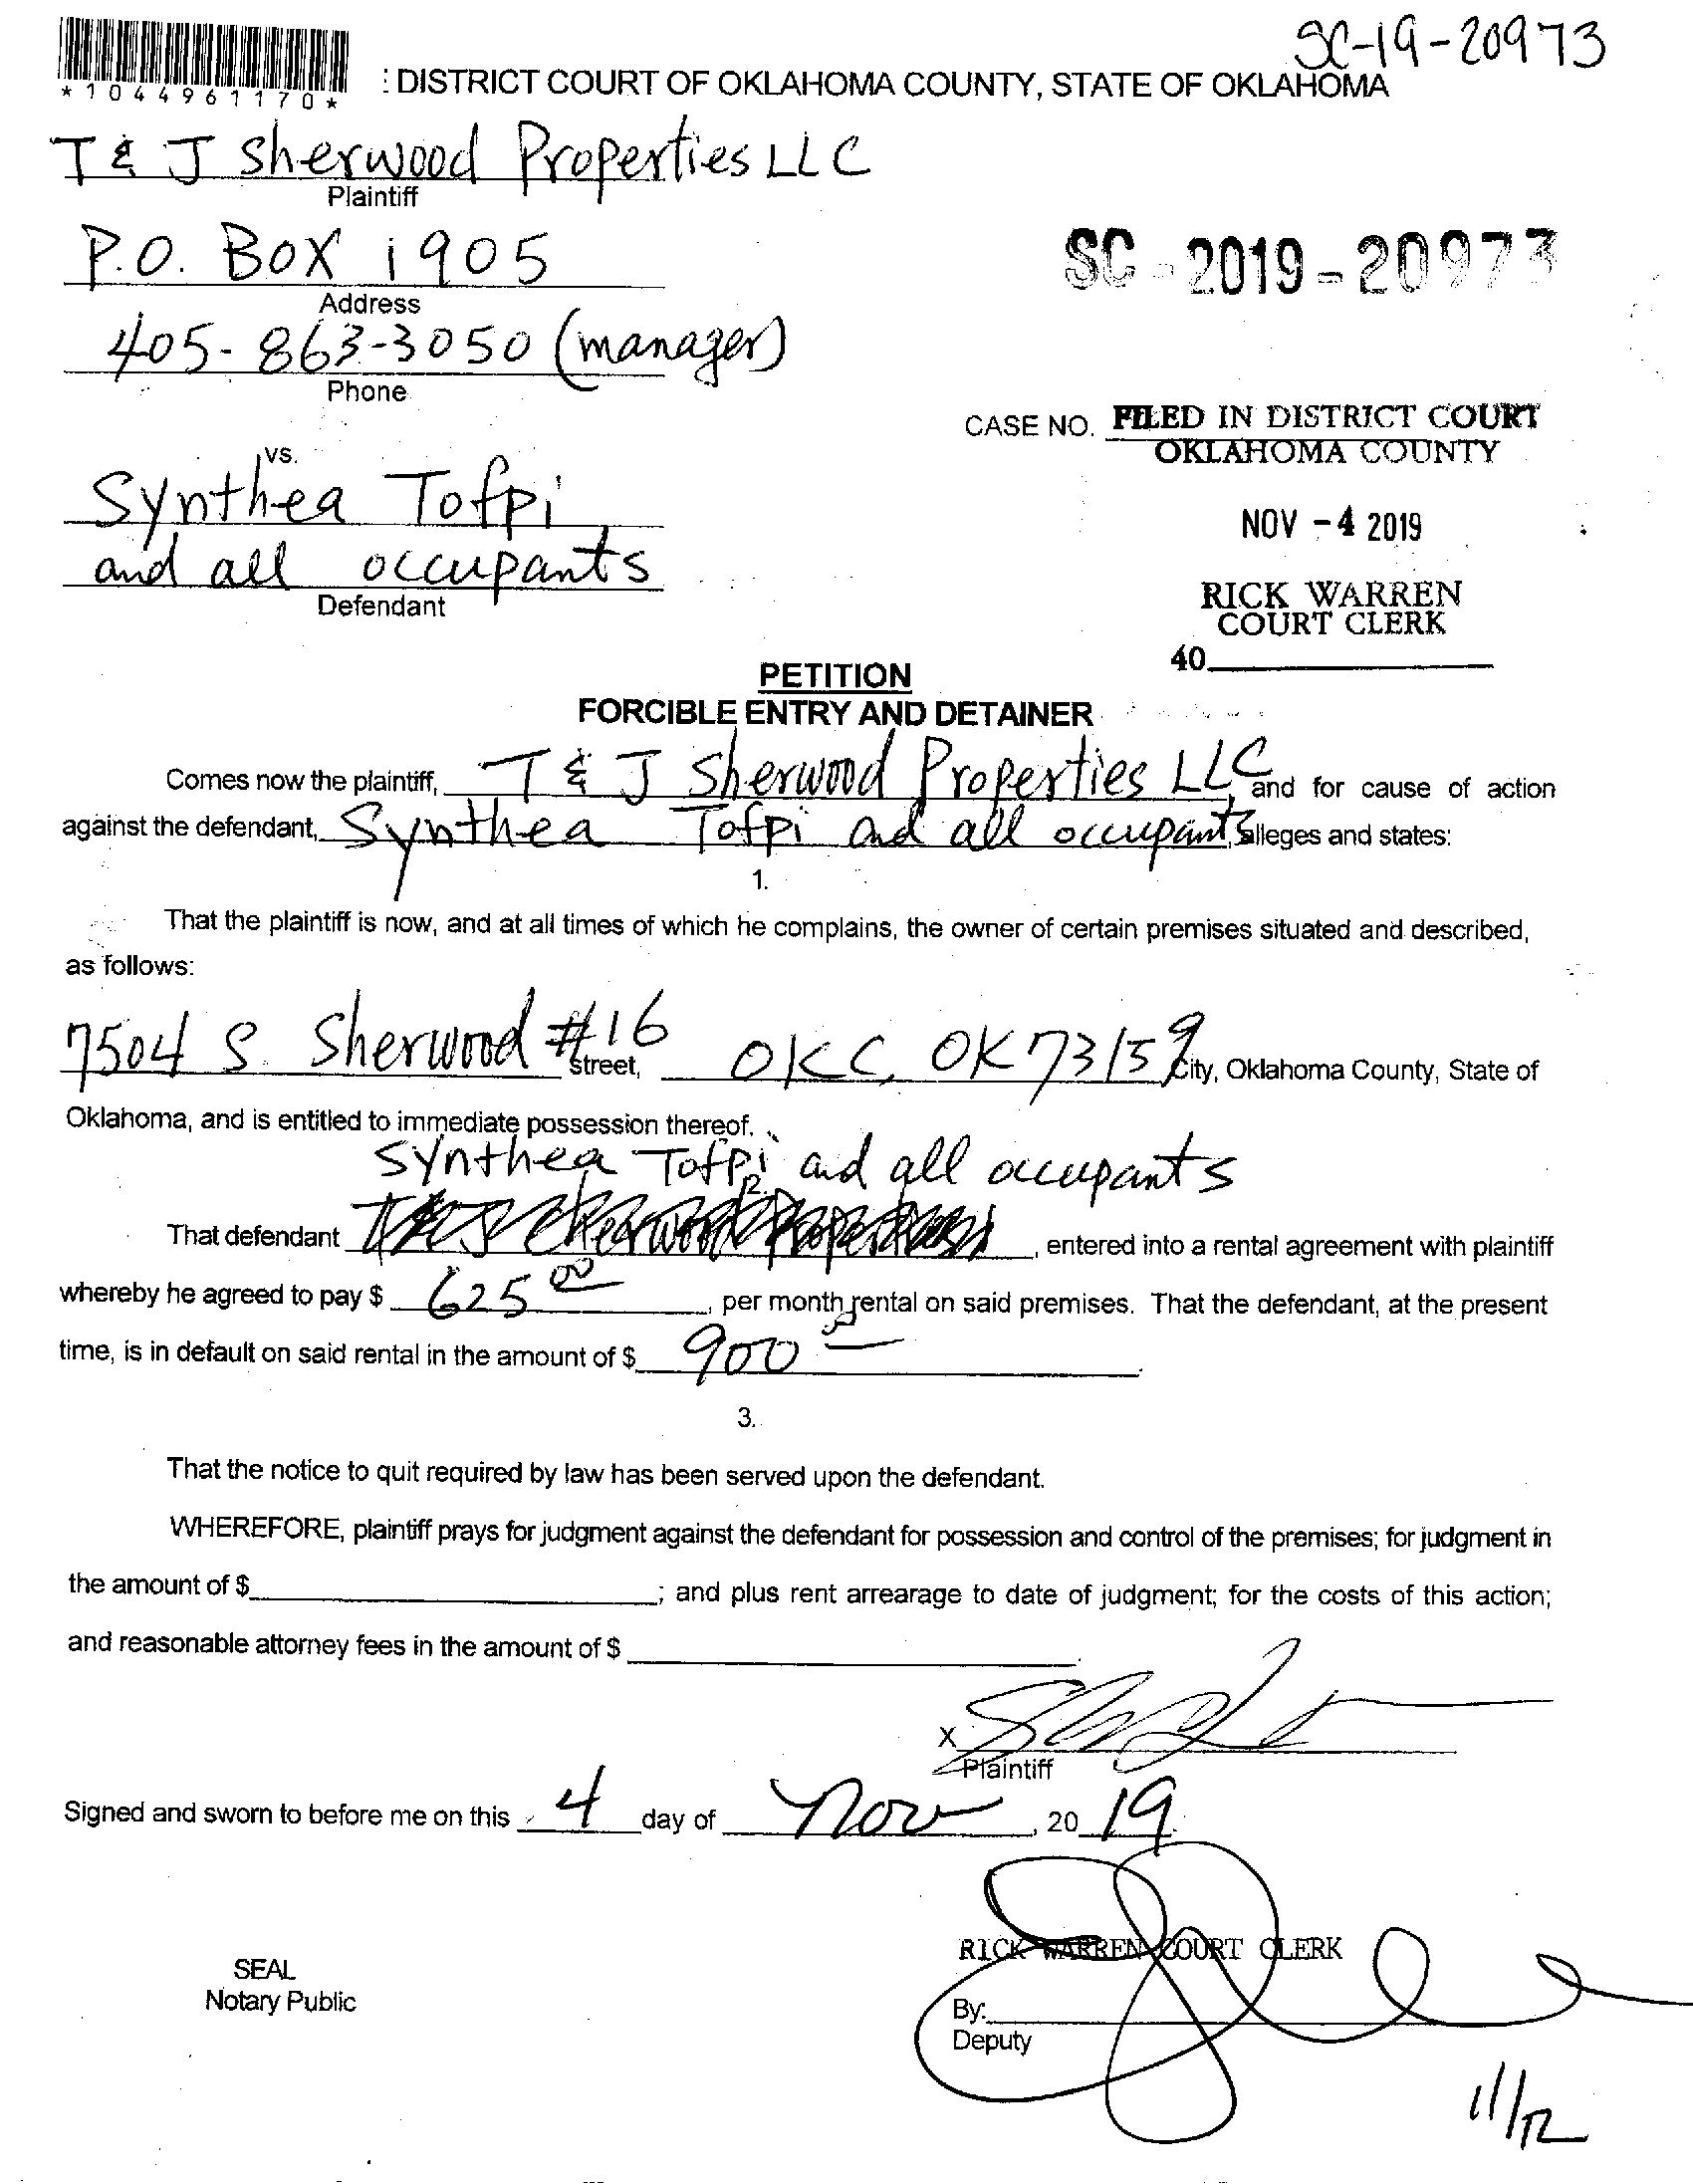 SC-19-20973
*1044961170*
: DISTRICT COURT OF OKLAHOMA COUNTY, STATE OF OKLAHOMA
T & J Sherwood Properties LLC
Plaintiff
P.O. BOX 1905
Address
SC-2019-20973
405-863-3050 (manager)
Phone
CASE NO. FILED IN DISTRICT COURT
OKLAHOMA COUNTY
vs.
Synthea Tofpi
NOV -4 2019
and all occupants
Defendant
RICK WARREN
COURT CLERK
40
PETITION
FORCIBLE ENTRY AND DETAINER
Comes now the plaintiff, T & J Sherwood Properties LLC and for cause of action
against the defendant, Synthea Tofpi and all occupants, alleges and states:
1.
That the plaintiff is now, and at all times of which he complains, the owner of certain premises situated and described,
as follows:
7504 S. Sherwood #16 Street, OKC, OK 73159 City, Oklahoma County, State of
Oklahoma, and is entitled to immediate possession thereof.
Synthea Tofpi and all occupants
2.
That defendant T & J Sherwood Properties, entered into a rental agreement with plaintiff
whereby he agreed to pay $ 625 00, per month rental on said premises. That the defendant, at the present
time, is in default on said rental in the amount of $ 900 00.
3.
That the notice to quit required by law has been served upon the defendant.
WHEREFORE, plaintiff prays for judgment against the defendant for possession and control of the premises; for judgment in
the amount of $ ; and plus rent arrearage to date of judgment; for the costs of this action;
and reasonable attorney fees in the amount of $ .
X
Plaintiff
Signed and sworn to before me on this 4 day of Nov, 20 19.
RICK WARREN COURT CLERK
SEAL
Notary Public
By:
Deputy
11/12